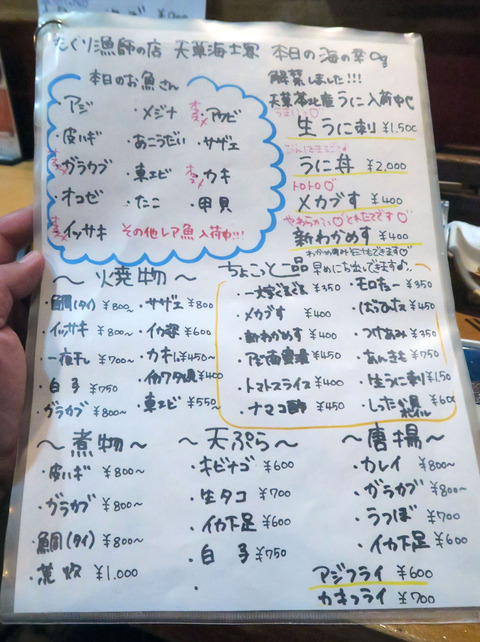 漁師の店 天草海士宴 本日の海の幸
本日のお魚さん
・アジ ・メジナ オススメ ・アワビ
・皮ハギ ・あこうだい ・サザエ
オススメ ・ガラカブ ・車エビ オススメ ・カキ
・オコゼ ・たこ ・甲貝
オススメ ・イッサキ その他レア魚入荷中!!!
解禁しました!!!
天草産 うに入荷中
うまいっ♡
生うに刺 ¥1,500
うに丼 ¥2,000
トロトロ♡
メカブす ¥400
やわらかっ♡ とれたてです♡
新わかめす ¥400
〜 焼物 〜
・鯛(タイ) ¥800〜 ・サザエ ¥800
・イッサキ ¥800〜 ・イカ姿 ¥600
・一夜干し ¥700〜 ・カキ ¥450〜
・白子 ¥750 ・イカワタ焼 ¥400
・ガラカブ ¥800〜 ・車エビ ¥550〜
ちょこっと一品 早めにお出しできます♪
・一文字ぐるぐる ¥350 ・モロきゅー ¥350
・メカブす ¥400 ¥450
・新わかめす ¥400 ・つけあみ ¥350
¥450 ・あんきも ¥750
・トマトスライス ¥400 ・生うに刺
・ナマコ酢 ¥450 ・したか貝ボイル ¥600
〜 煮物 〜
・皮ハギ ¥800〜
・ガラカブ ¥800〜
・鯛(タイ) ¥800〜
・荒炊 ¥1,000
〜 天ぷら 〜
・キビナゴ ¥600
・生タコ ¥700
・イカ下足 ¥600
・白子 ¥750
〜 唐揚 〜
・カレイ ¥800〜
・ガラカブ ¥800〜
・うつぼ ¥700
・イカ下足 ¥600
アジフライ ¥600
カキフライ ¥700